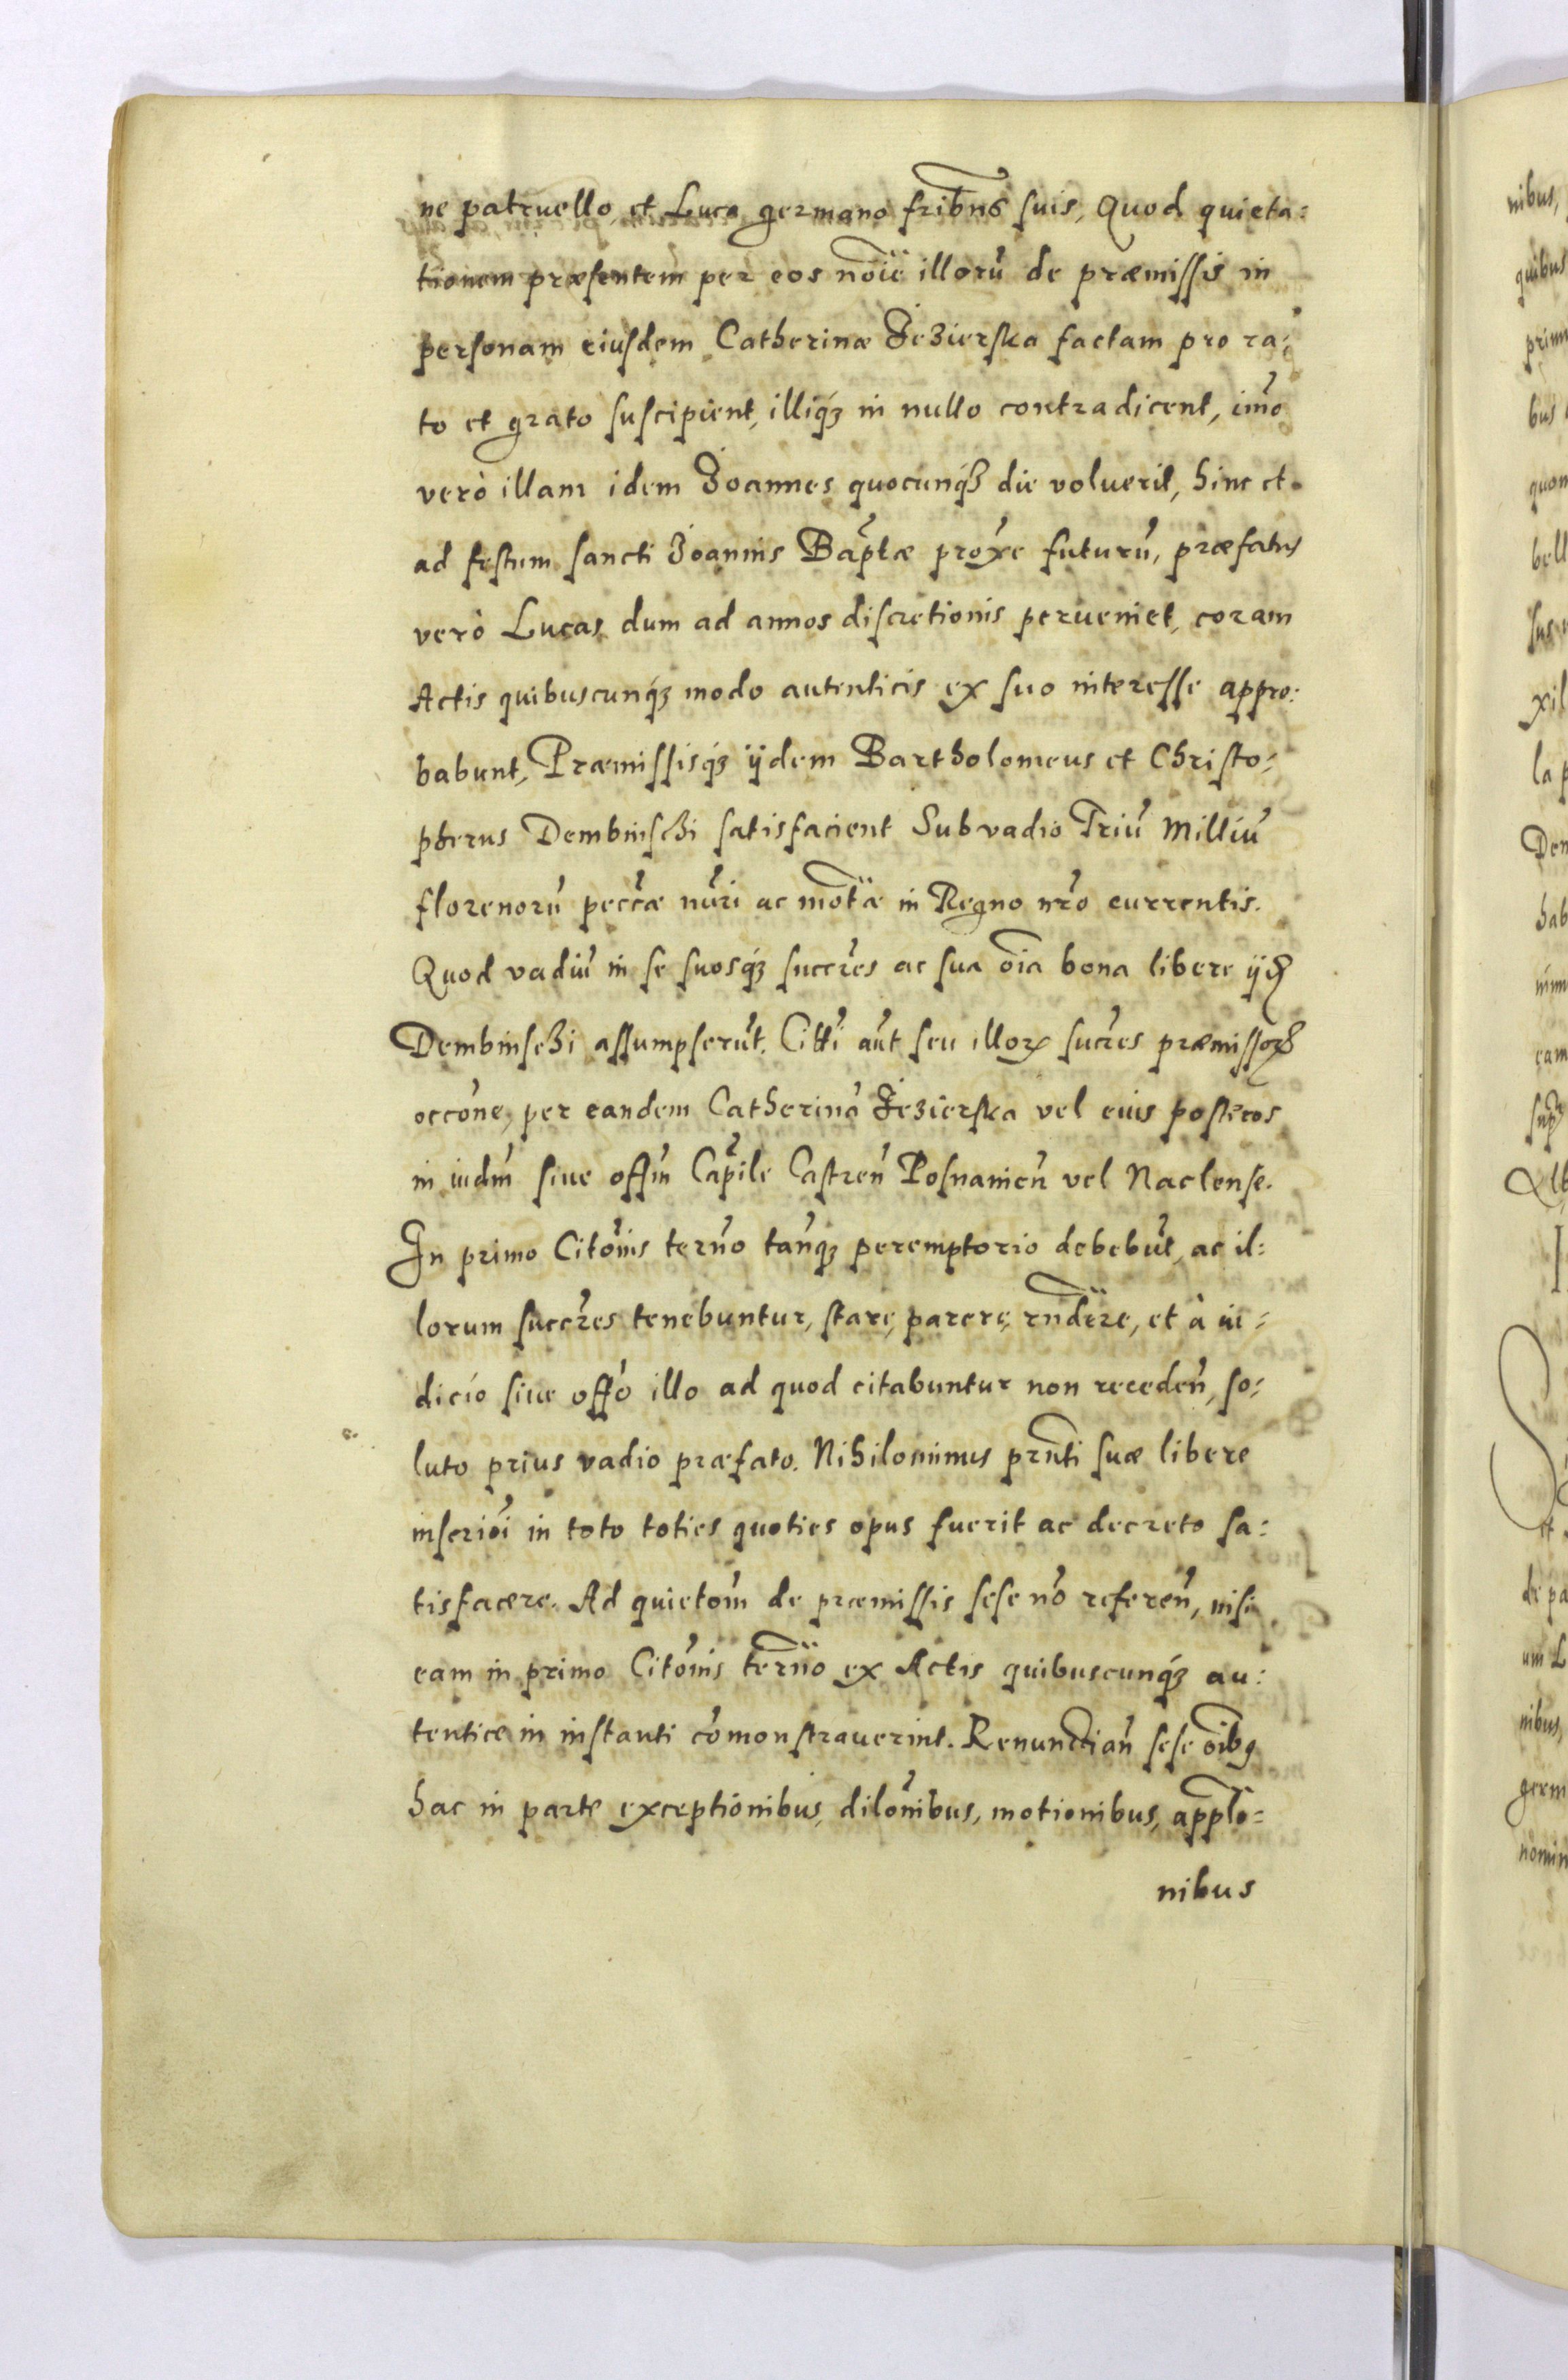 ne patruello, et Luca germano fribus suis, Quod quieta:
tionem præsentem per eos noie illorū de præmissis in
personam eiusdem Catherinæ Jezierska factam pro ra:
to et grato suscipient, illiqz in nullo contradicent, imo
verò illam idem Joannes quocunqz die voluerit, hinc et
ad festum sancti Joannis Baptæ proxe futurū, præfatus
verò Lucas dum ad annos discretionis perveniet, coram
Actis quibuscunqz modo autenticis ex suo interesse appro:
babunt, Præmissisqz ijdem Bartholomeus et Christo:
pherus Dembinschi satisfacient Sub vadio Triū Milliū
florenorū peccæ nūri ac motæ in Regno nro currentis.
Quod vadiū in se suosqz succres ac sua oia bona libere ijd
Dembinschi assumpserūt. Citti aūt seu illorꝝ sucres præmissoꝝ
occone, per eandem Catherinā Jezierska vel eius posteros
in iudm siue offm Capile Castren Posnanien vel Naclense.
In primo Citonis termo tanqz peremptorio debebūt, ac il:
lorum succres tenebuntur, stare, parere, rndere, et à iu:
dicio siue offo illo ad quod citabuntur non receden, so:
luto prius vadio præfato. Nihilominus prnti suæ libere
inscrioi in toto toties quoties opus fuerit ac decreto sa:
tisfacere. Ad quietom de præmissis sese no referen, nisi
eam in primo Citonis termo ex Actis quibuscunqz au:
tentice in instanti comonstraverint. Renunctian sese oibꝯ
hac in parte exceptionibus, dilonibus, motionibus, applo:
nibus